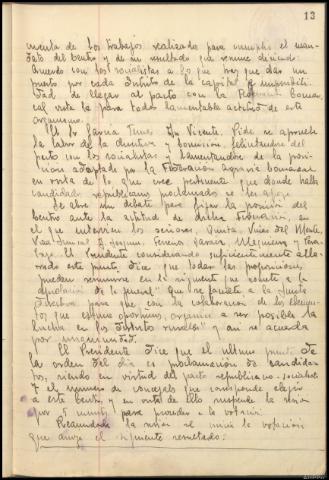 13
cuenta de los trabajos realizados para cumplir el man-
dato del Centro y de su resultado que
acuerdo con los socialistas a los que hay que dar un
puesto por cada distrito de la capital e imposibili-
dad de llegar al pacto con la Federación Comar-
cal vista la para todos lamentable actitud de este
organismo.
El Sr. García Vicente, Pide se apruebe
la labor de la directiva y comisión, felicitándose del
pacto con los socialistas y lamentándose de la posi-
ción adoptada por la Federación agraria comarcal
en vista de lo que cree pertinente que donde hallo
candidatos republicanos proclamados se
Se abre un debate para fijar la posición del
Centro ante la actitud de dicha Federación, en
el que intervienen los señores,
El Presidente considerando suficientemente acla-
rado este punto, dice que todas las proposiciones
pueden resumirse en el siguiente que somete a la
"Que se faculte a la Junta
directiva para que con la colaboración de los elemen-
tos que estime oportunos, organice a ser posible la
lucha en los distritos rurales" y así se acuerda
por unanimidad.
El Presidente dice que el último punto de
la orden del día es la proclamación de candida-
tos, siendo en virtud del pacto republicano-socialista
el número de concejales que corresponde elegir
a este Centro y en vista de ello suspende la sesión
por 5 minutos para proceder a la votación.
Reanudada la sesión se inicia la votación
que arroja el siguiente resultado: